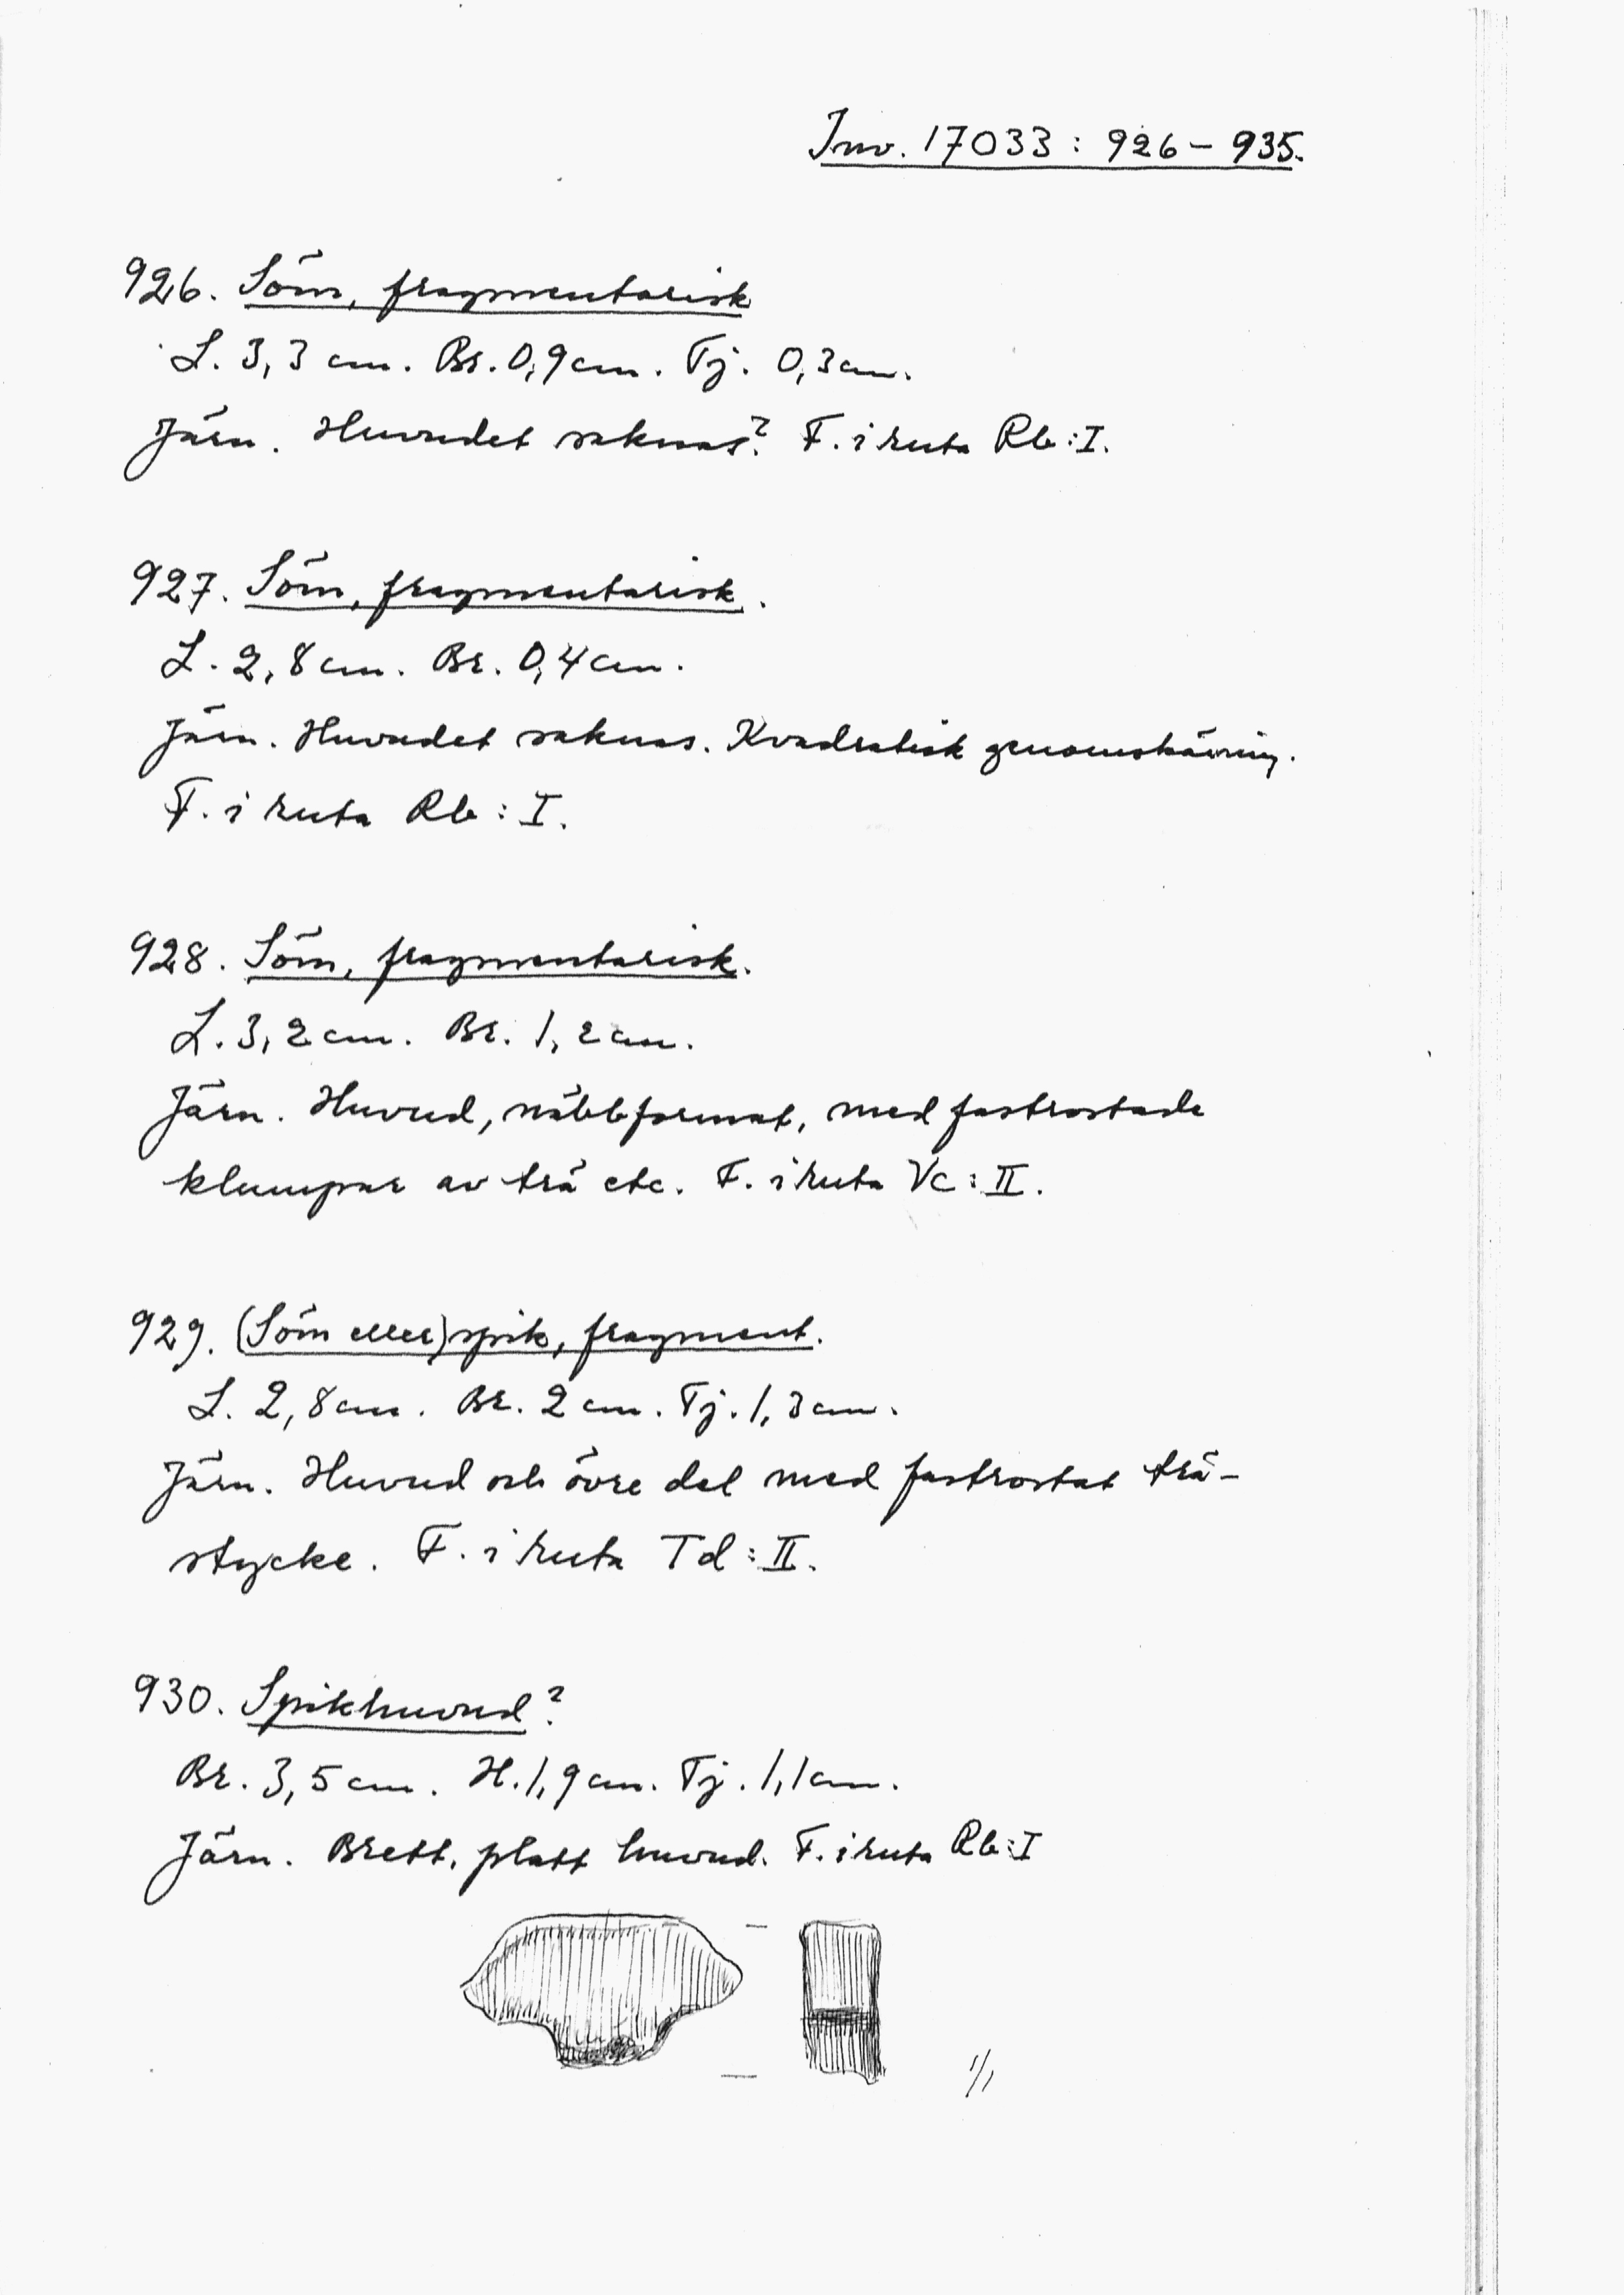 Inv. 17033 : 926 – 935.
926. Söm, fragmentarisk
L. 3,3 cm. Br. 0,9 cm. Tj. 0,3 cm.
Järn. Huvudet saknas? F. i ruta Rb : I.
927. Söm, fragmentarisk.
L. 2,8 cm. Br. 0,4 cm.
Järn. Huvudet saknas. Kvadratisk genomskärning.
F. i ruta Rb : I.
928. Söm, fragmentarisk.
L. 3,2 cm. Br. 1,2 cm.
Järn. Huvud, näbbformat, med fastrostade
klumpar av trä etc. F. i ruta Vc : II.
929. (Söm eller) spik, fragment.
L. 2,8 cm. Br. 2 cm. Tj. 1,3 cm.
Järn. Huvud och övre del med fastrostat trä-
stycke. F. i ruta Td : II.
930. Spikhuvud?
Br. 3,5 cm. H. 1,9 cm. Tj. 1,1 cm.
Järn. Brett, platt huvud. F. i ruta Rb : I
1/1